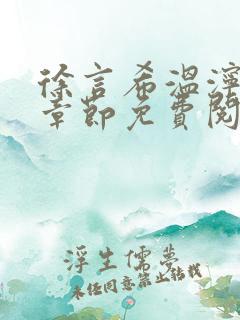 徐言希温泞
章节免费阅
浮生儒梦
未经同意禁止转载